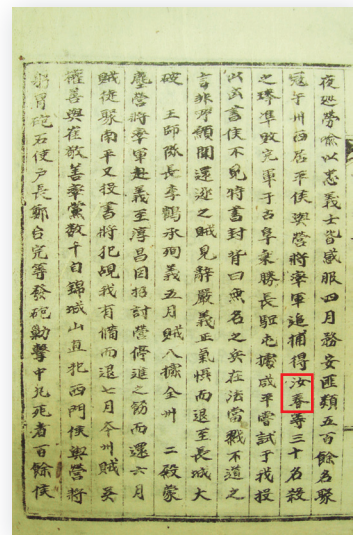 夜巡警喩以忠義士皆感服四月務安匪類五百餘名聚
寇于州西居平侯與營將率軍追捕得汝春等三十名殺
之琫準敗完軍于古阜乘勝長驅屯據咸平嘗試于我投
以書侯不見特書封背曰無名之兵在法當戮不道之
言非學願聞還送之賊見辭嚴義正氣慴而退至長城大
破 王師隊長李鶴承殉義五月賊入據全州 二殿蒙
塵營將率軍赴義至淳昌因招討營停進之飭而還六月
賊徒聚南平又投書將犯覘我有備而退七月本州賊吳
權善與崔敬善率黨數千自錦城山直犯西門侯與營將
躬冒砲石使戶長鄭台完等發砲勦擊中丸死者百餘侯